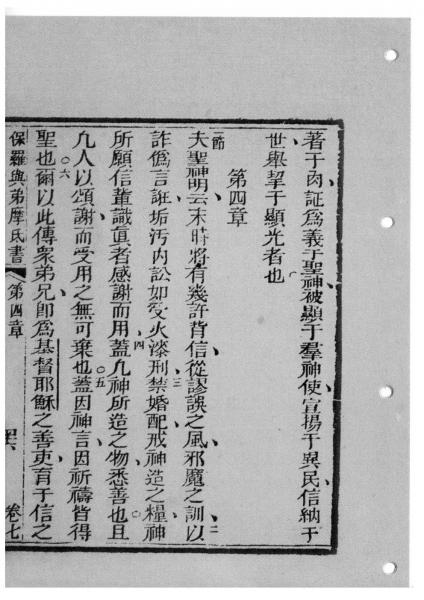 著于肉証爲義于聖神被顯于羣神使宣揚于異民信納于
世舉挈于顯光者也
第四章
一節夫聖神明云末時將有幾許背信從謬誤之風邪魔之訓以二
詐僞言誑垢污内訟如受火漆刑三禁婚配戒神造之糧神
所願信輩識真者感謝而用四蓋凡神所造之物悉善也且
凡人以頌謝而受用之無可棄也五蓋因神言因祈禱皆得
聖也六爾以此傳衆弟兄即爲基督耶穌之善吏育于信之
保羅與弟摩氏書 第四章 卷七